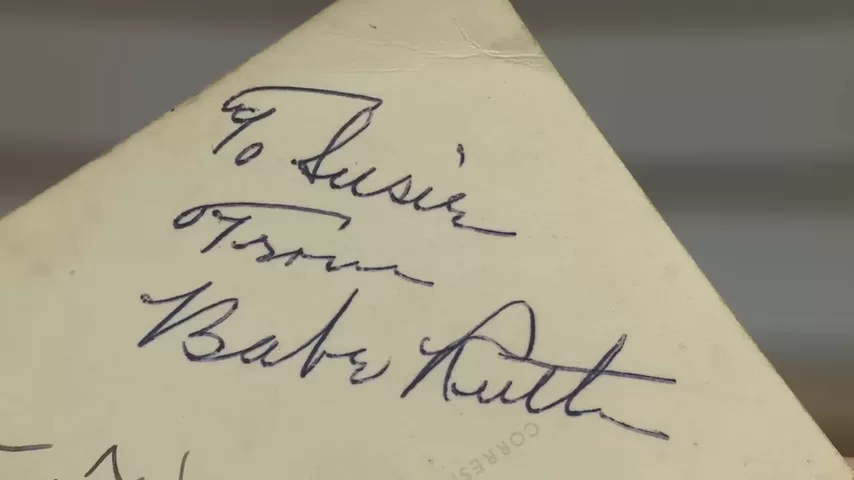 To Susie
From
Babe Ruth
CORRES